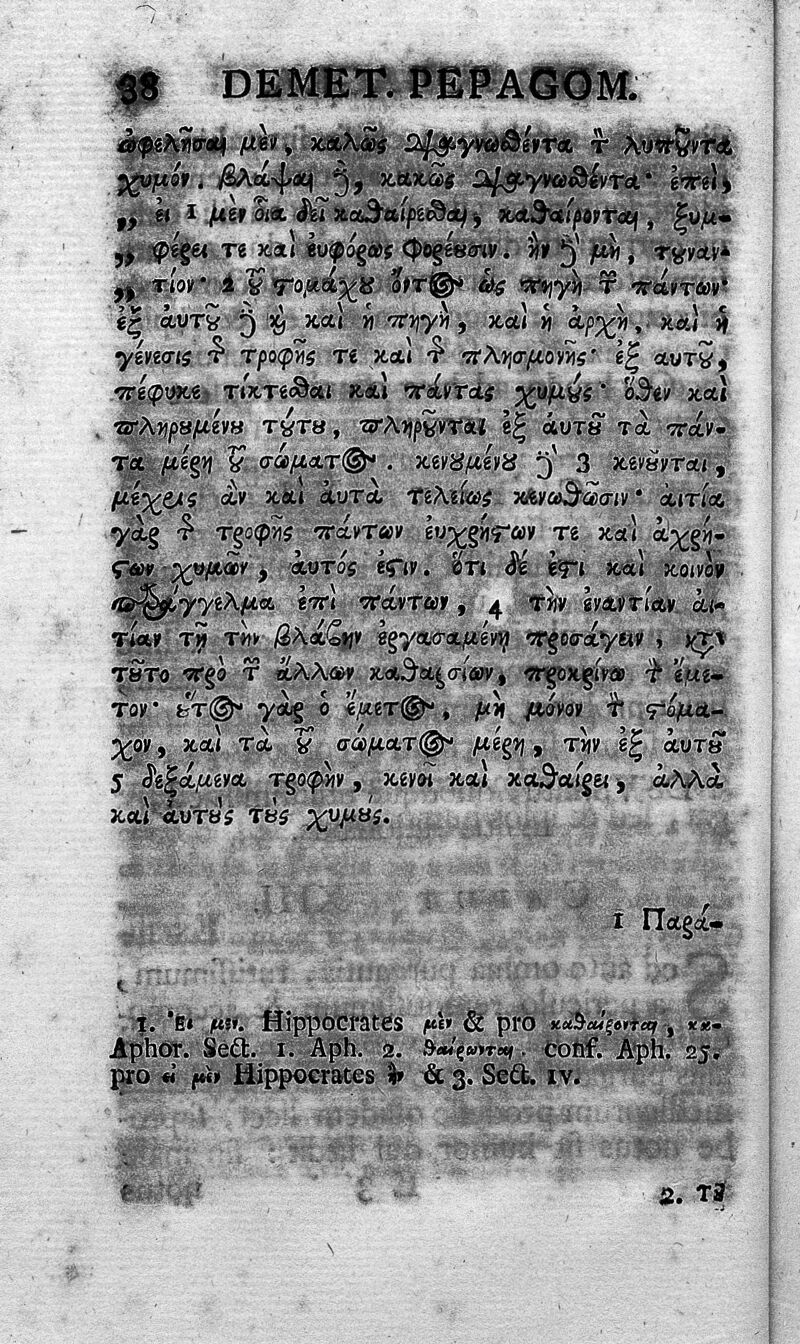 38 DEMET. PEPAGOM.
ὠφελῆσαι μὲν, καλῶς διαγνωσθέντα τὸν λυποῦντα
χυμόν. βλάψαι δὲ, κακῶς διαγνωσθέντα· ἐπεὶ,
„ ἐι 1 μὲν οἷα δεῖ καθαίρεσθαι, καθαίρονται, ξυμ-
„ φέρει τε καὶ ἐυφόρως φορέουσιν. ἢν δὲ μὴ, τοὐναν-
„ τίον· 2 τοῦ στομάχου ὄντος ὡς πηγὴ τῶν πάντων·
ἐξ ἀυτοῦ δὲ καὶ ἡ πηγὴ, καὶ ἡ ἀρχὴ, καὶ ἡ
γένεσις τῆς τροφῆς τε καὶ τῆς πλησμονῆς· ἐξ αυτοῦ,
πέφυκε τίκτεσθαι καὶ πάντας χυμούς· ὅθεν καὶ
πληρουμένου τούτου, πληροῦνται ἐξ ἀυτοῦ τὰ πάν-
τα μέρη τοῦ σώματος. κενουμένου δὲ 3 κενοῦνται,
μέχρις ἂν καὶ ἀυτὰ τελείως κενωθῶσιν· ἀιτία
γὰρ τῆς τροφῆς πάντων ἐυχρήστων τε καὶ ἀχρή-
στων χυμῶν, ἀυτός ἐστιν. ὅτι δέ ἐστι καὶ κοινὸν
παράγγελμα ἐπὶ πάντων, 4 τὴν ἐναντίαν ἀι-
τίαν τῇ τὴν βλάβην ἐργασαμένῃ προσάγειν, κατὰ
τοῦτο πρὸ τῶν ἄλλων καθαρσίων, προκρίνω τὸν ἔμε-
τον· οὕτος γὰρ ὁ ἔμετος, μὴ μόνον τὸν στόμα-
χον, καὶ τὰ τοῦ σώματος μέρη, τὴν ἐξ ἀυτοῦ
5 δεξάμενα τροφὴν, κενοῖ καὶ καθαίρει, ἀλλὰ
καὶ ἀυτοὺς τοὺς χυμούς.
1 Παρά-
1. Ἐι μεν. Hippocrates
Aphor. Sect. 1. Aph. 2.
pro εἰ μὲν Hippocrates ἢν
μὲν & pro καθαίρονται, κα-
θαίρωνται. conf. Aph. 25.
& 3. Sect. IV.
2. Τοῦ